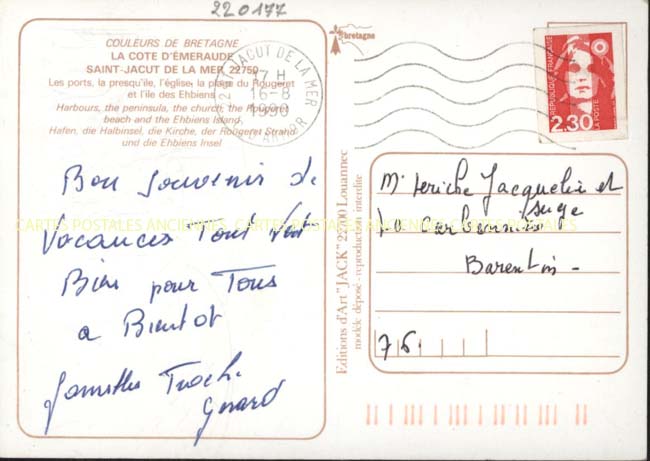 220177
COULEURS DE BRETAGNE
LA COTE D'ÉMERAUDE
SAINT-JACUT DE LA MER 22750
Les ports, la presqu'île, l'église, la plage du Rougeret
et l'île des Ehbiens
Harbours, the peninsula, the church, the Rougeret
beach and the Ehbiens Island
Hafen, die Halbinsel, die Kirche, der Rougeret Strand
und die Ehbiens Insel
JACUT DE LA MER
17 H
16-8
1990
bretagne
RÉPUBLIQUE FRANÇAISE
2,30
LA POSTE
Bon souvenir de
Vacances Tout Va
Bien pour Tous
a Bientot
Gérard
Editions d'Art "JACK" 22700 Louannec
modèle déposé - reproduction interdite
Mr Jacqueline et
Barentin -
76.
CARTES POSTALES ANCIENNES